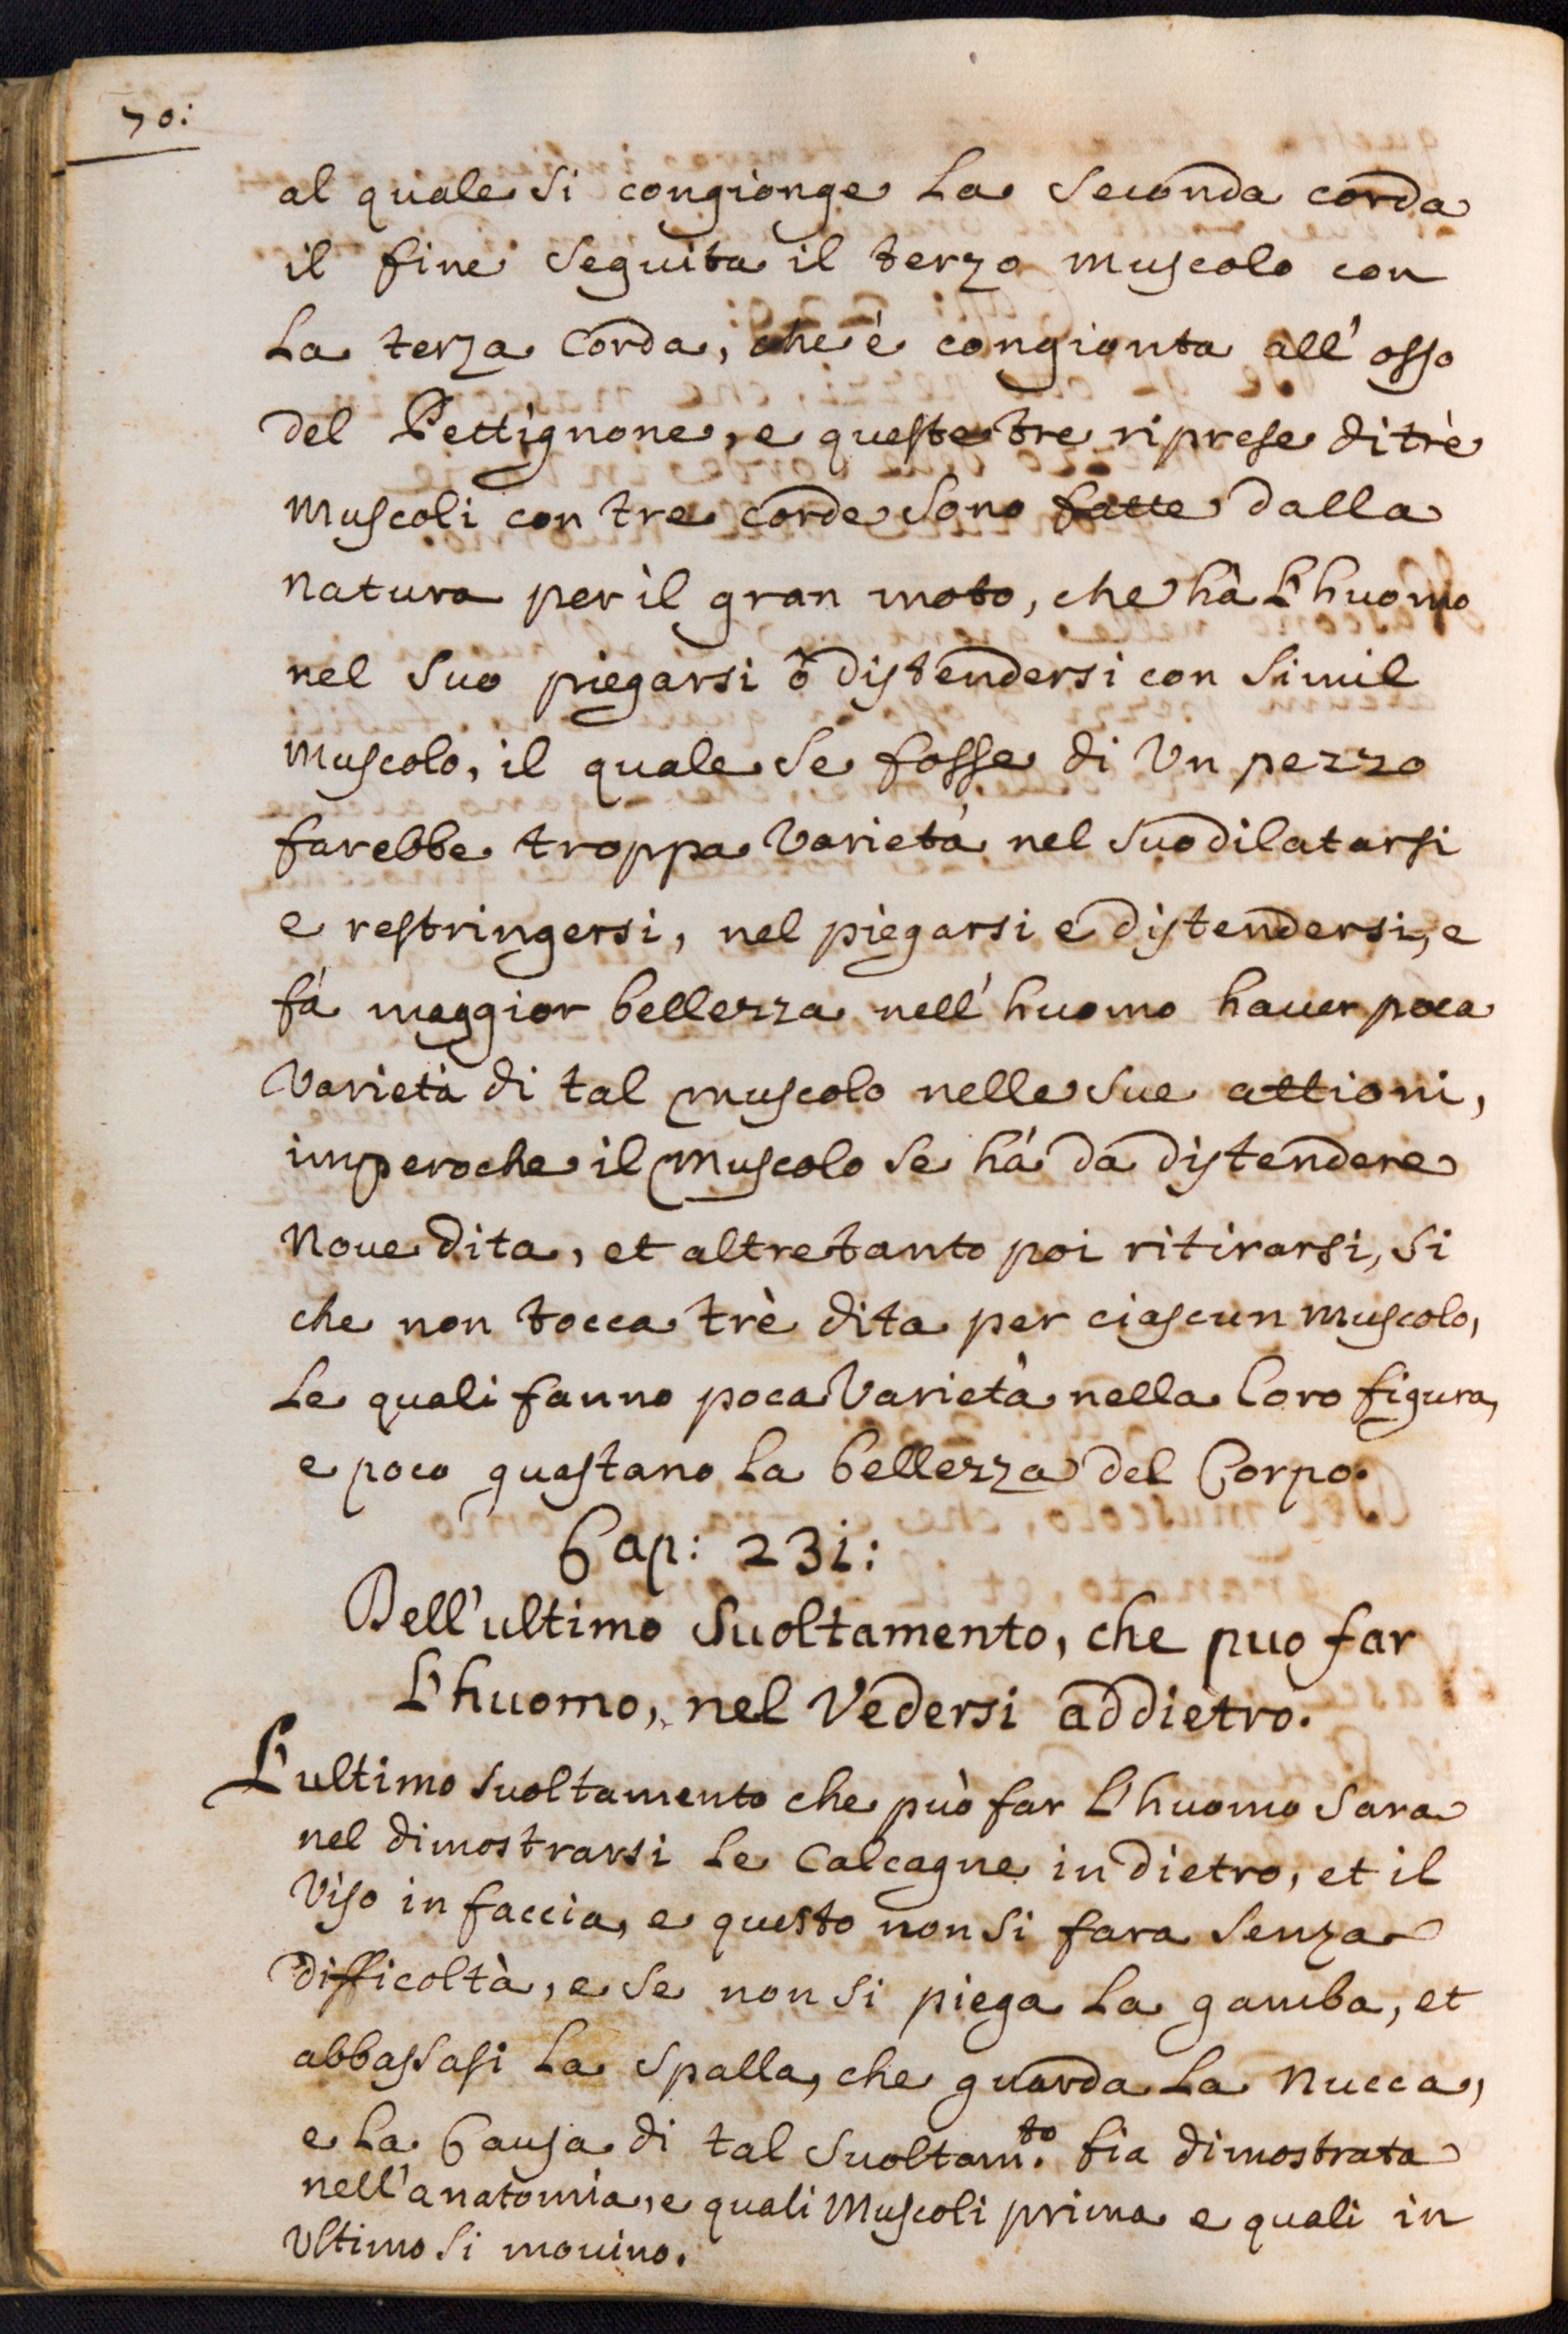 70:
al quale si congionge la seconda corda
il fine seguita il terzo muscolo con
la terza corda, che è congionta all'osso
del Pettignone, e queste tre riprese di trè
muscoli con tre corde sono fatte dalla
natura per il gran moto, che hà L'huomo
nel suo piegarsi ò distendersi con simil
muscolo, il quale se fosse di un pezzo
farebbe troppa varietà nel suo dilatarsi
e restringersi, nel piegarsi e distendersi, e
fà maggior bellezza nell'huomo hauer poca
varietà di tal muscolo nelle sue attioni,
imperoche il muscolo se hà da distendere
noue dita, et altretanto poi ritirarsi, si
che non tocca trè dita per ciascun muscolo,
le quali fanno poca varietà nella loro figura,
e poco guastano la bellezza del Corpo.
Cap: 231:
Dell'ultimo suoltamento, che puo far
L'huomo, nel vedersi addietro.
L'ultimo suoltamento che può far L'huomo sara
nel dimostrarsi le calcagne in dietro, et il
viso in faccia, e questo non si fara senza
difficoltà, e se non si piega la gamba, et
abbassasi la spalla, che guarda la nucca,
e la Causa di tal suoltam.to fia dimostrata
nell'anatomia, e quali muscoli prima e quali in
ultimo si mouino.